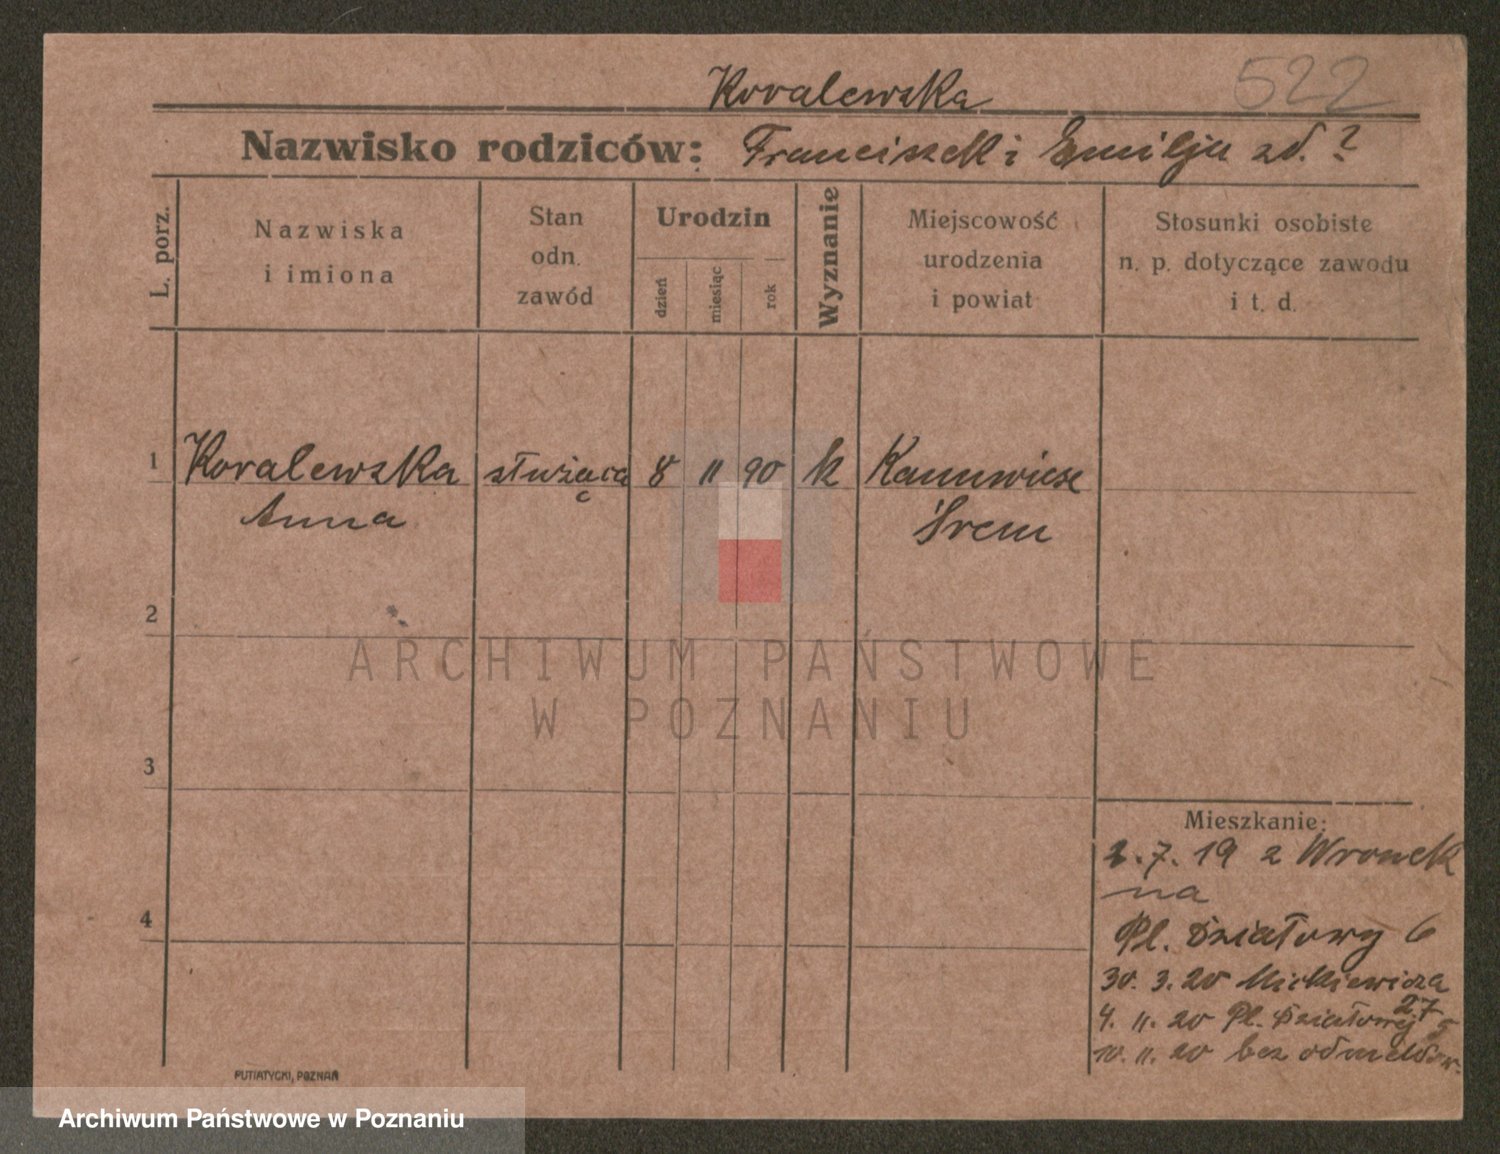 522
Koralewska
Nazwisko rodziców: Franciszek i Emilja zd. ?
L. porz.
Nazwiska
i imiona
Stan
odn.
zawód
Urodzin
dzień
miesiąc
rok
Wyznanie
Miejscowość
urodzenia
i powiat
Stosunki osobiste
n. p. dotyczące zawodu
i t. d.
1 Koralewska służąca 8 11 90 k
Anna Śrem
2
ARCHIWUM PAŃSTWOWE
W POZNANIU
3
Mieszkanie:
7. 19 z Wronek
na
4
Pl. Działowy 6
30. 3. 20 Mickiewicza
27
4. 11. 20 Pl. Działowy 5
10. 11. 20 bez
PUTIATYCKI, POZNAŃ
Archiwum Państwowe w Poznaniu